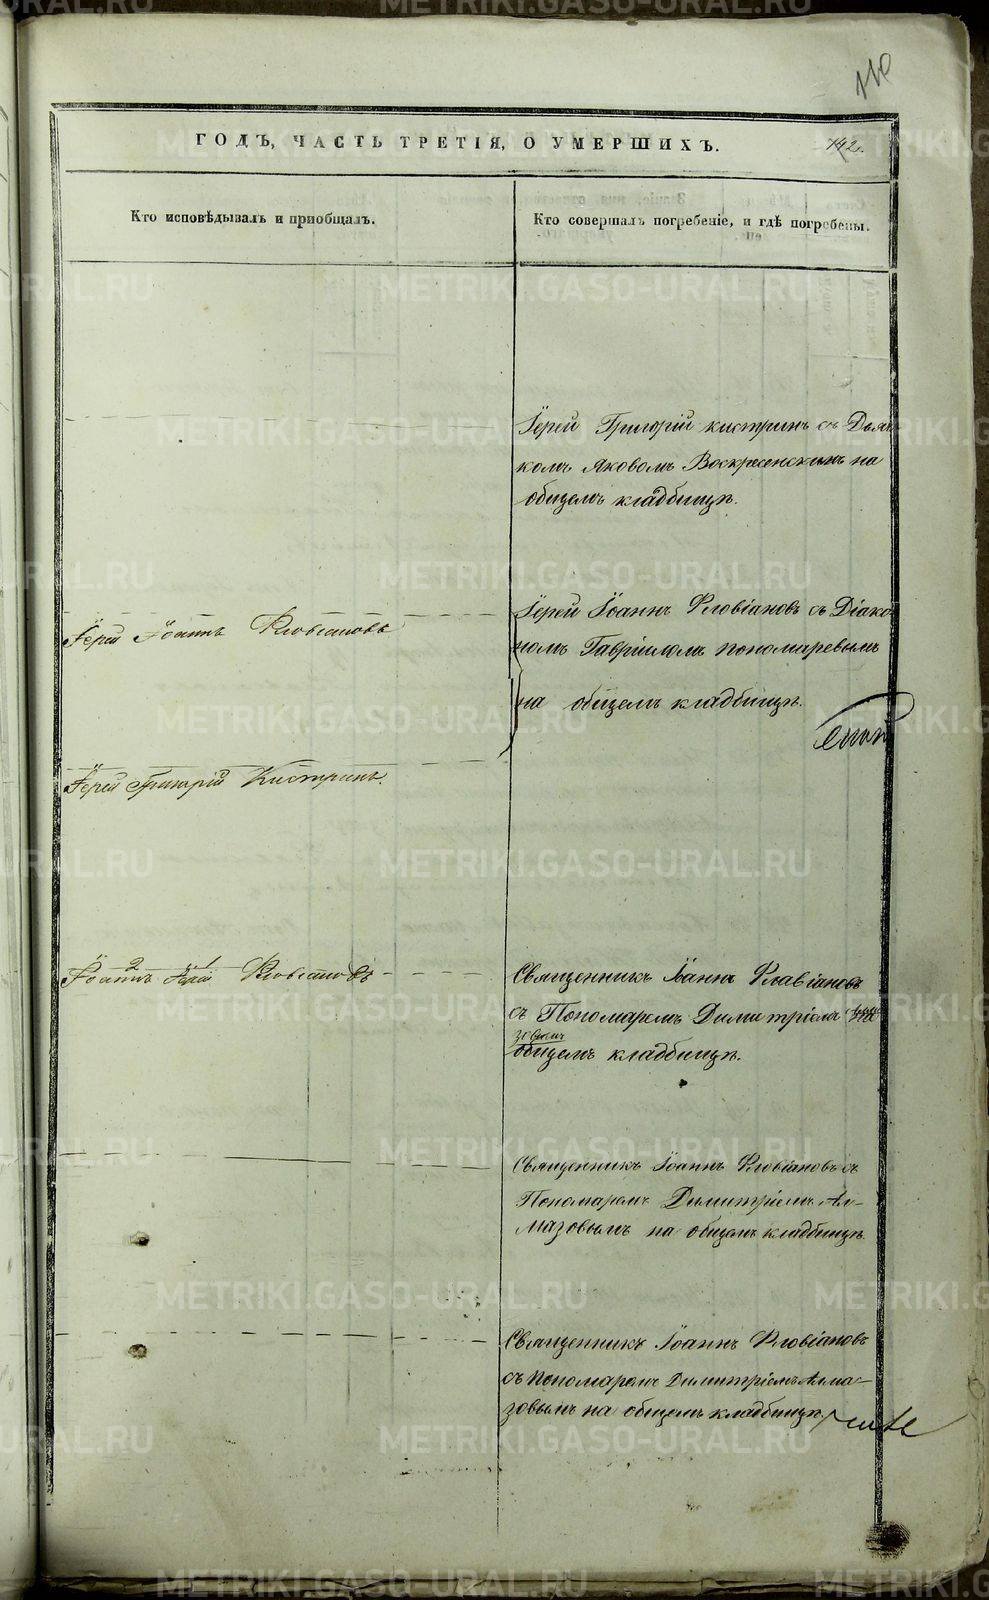 110
ГОДЪ, ЧАСТЬ ТРЕТІЯ, О УМЕРШИХЪ.
142.
Кто исповѣдывалъ и пріобщалъ.
Кто совершалъ погребеніе, и гдѣ погребены.
Іерей Григорій Кистринъ съ Дья-
комъ Яковомъ Воскресенскимъ на
общемъ кладбищѣ.
Іерей Іоаннъ Фловіановъ
Іерей Іоаннъ Фловіановъ съ Діако
номъ Гавріиломъ Пономаревымъ
на общемъ кладбищѣ.
Іерей Григорій Кистринъ.
Іоаннъ Фловіановъ
Священникъ Іоаннъ Флавіановъ
съ Пономаремъ Димитріемъ
зовымъ
общемъ кладбищѣ.
Священникъ Іоаннъ Фловіановъ съ
Пономаремъ Димитріемъ Ал-
мазовымъ на общемъ кладбищѣ.
Священникъ Іоаннъ Фловіановъ
съ Пономаремъ Димитріемъ Алма-
зовымъ на общемъ кладбищѣ.
METRIKI.GASO-URAL.RU